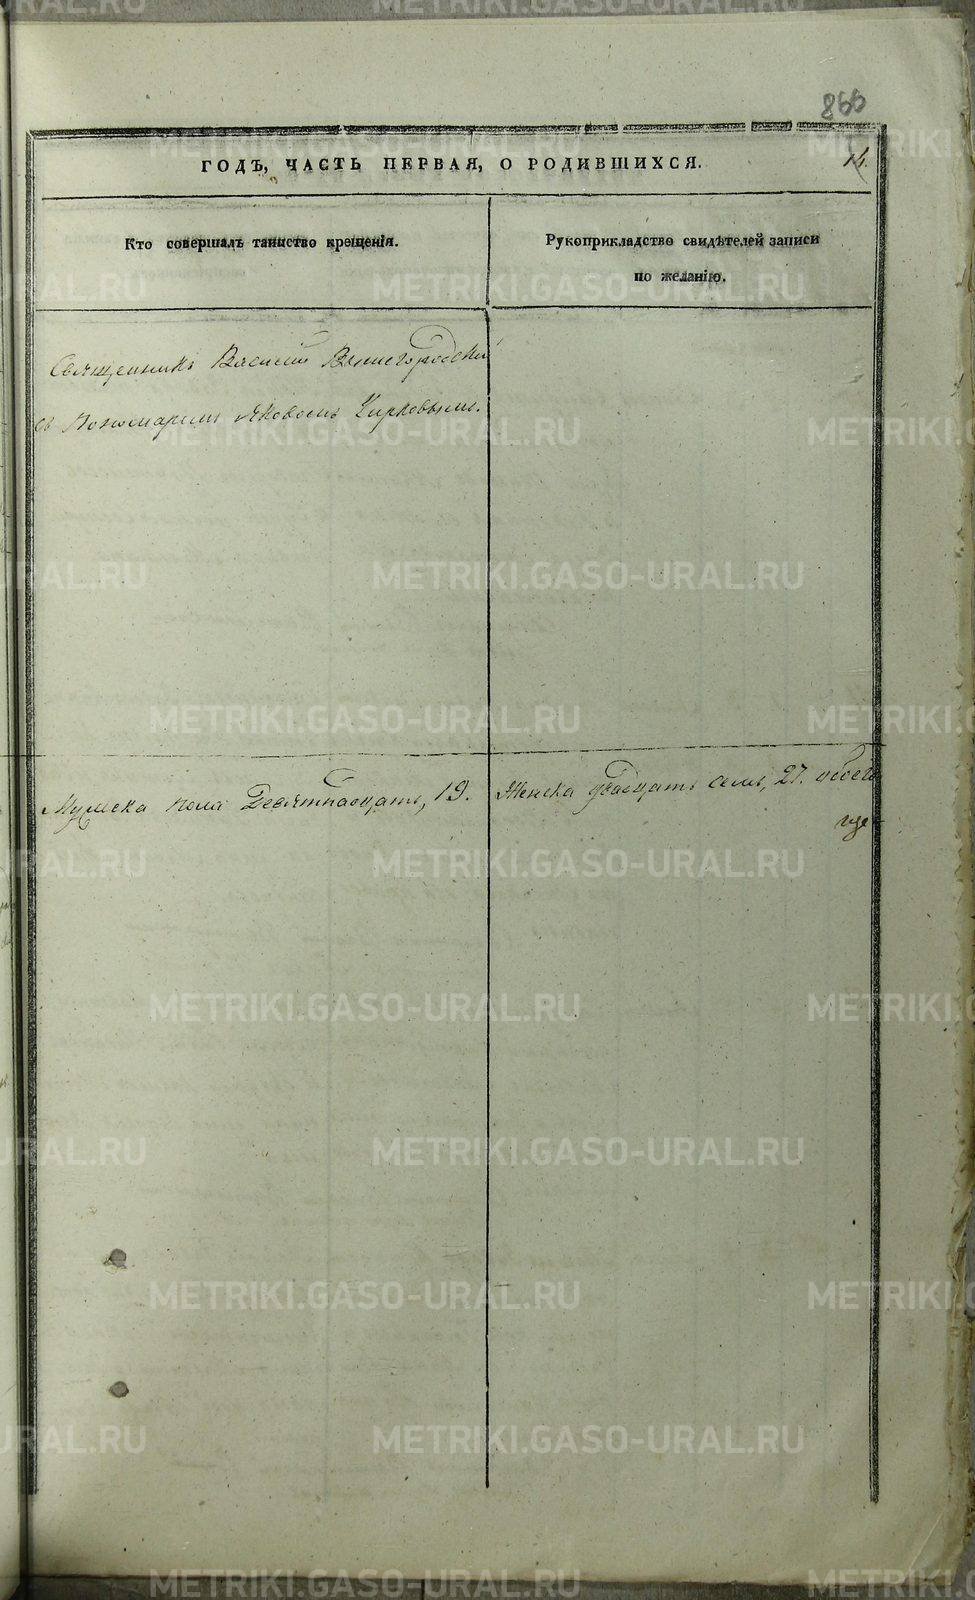 866
14.
ГОДЪ, ЧАСТЬ ПЕРВАЯ, О РОДИВШИХСЯ.
Кто совершалъ таинство крещенія.
Рукоприкладство свидѣтелей записи
по желанію.
Священникъ Василій Вышегородскій
съ Пономаремъ Яковомъ Кирковымъ.
Мужеска пола Девятнадцать, 19.
Женска двадцать семь, 27. обоего
METRIKI.GASO-URAL.RU